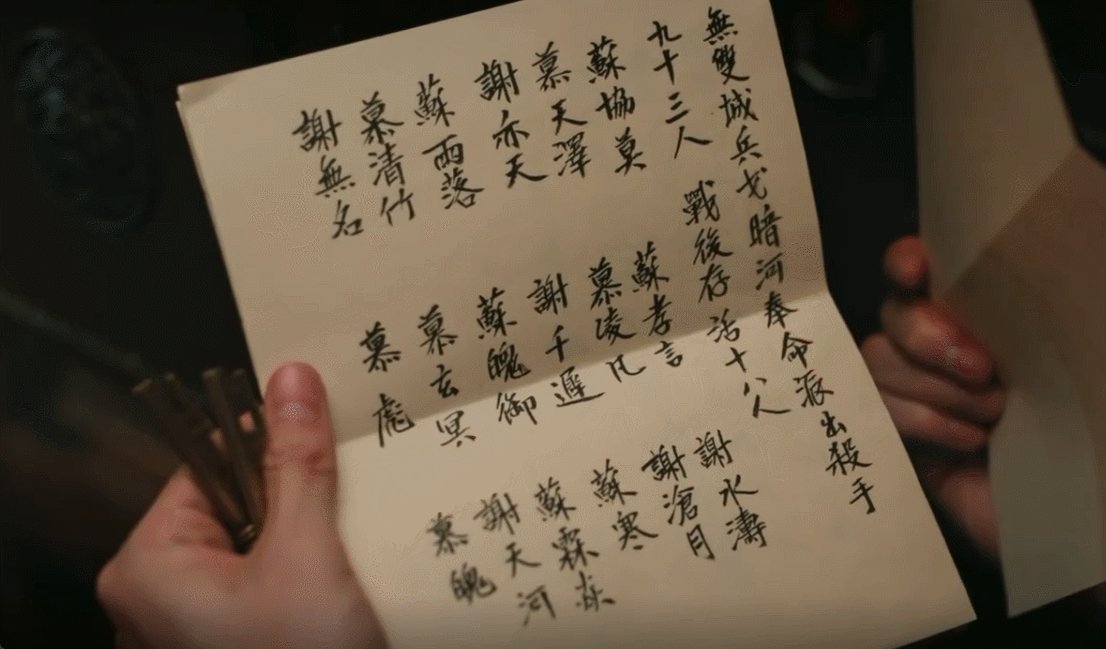 無雙城兵戈暗河奉命派出殺手
九十三人 戰後存活十八人
蘇協莫 蘇孝言 謝水濤
慕天澤 慕凌凡 謝滄月
謝亦天 謝千 蘇寒
蘇雨落 蘇魄御 蘇霖
慕清竹 慕玄冥 謝天河
謝無名 慕 慕魄